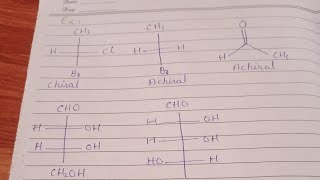 Ex:
CH3 CH3 O
H Cl H H H CH3
Br Br Achiral
Chiral Achiral
CHO CHO
H OH H OH
H OH H OH
CH2OH HO H